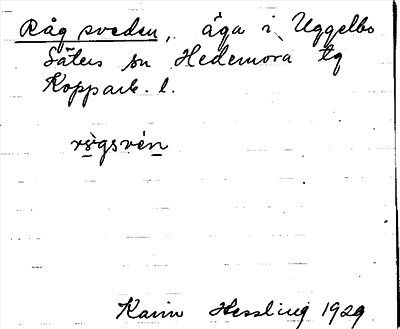 Råg sveden, äga i Uggelbo
Säters sn Hedemora tg
Kopparb. l.
rs̀gsvén
Karin Hessling 1929